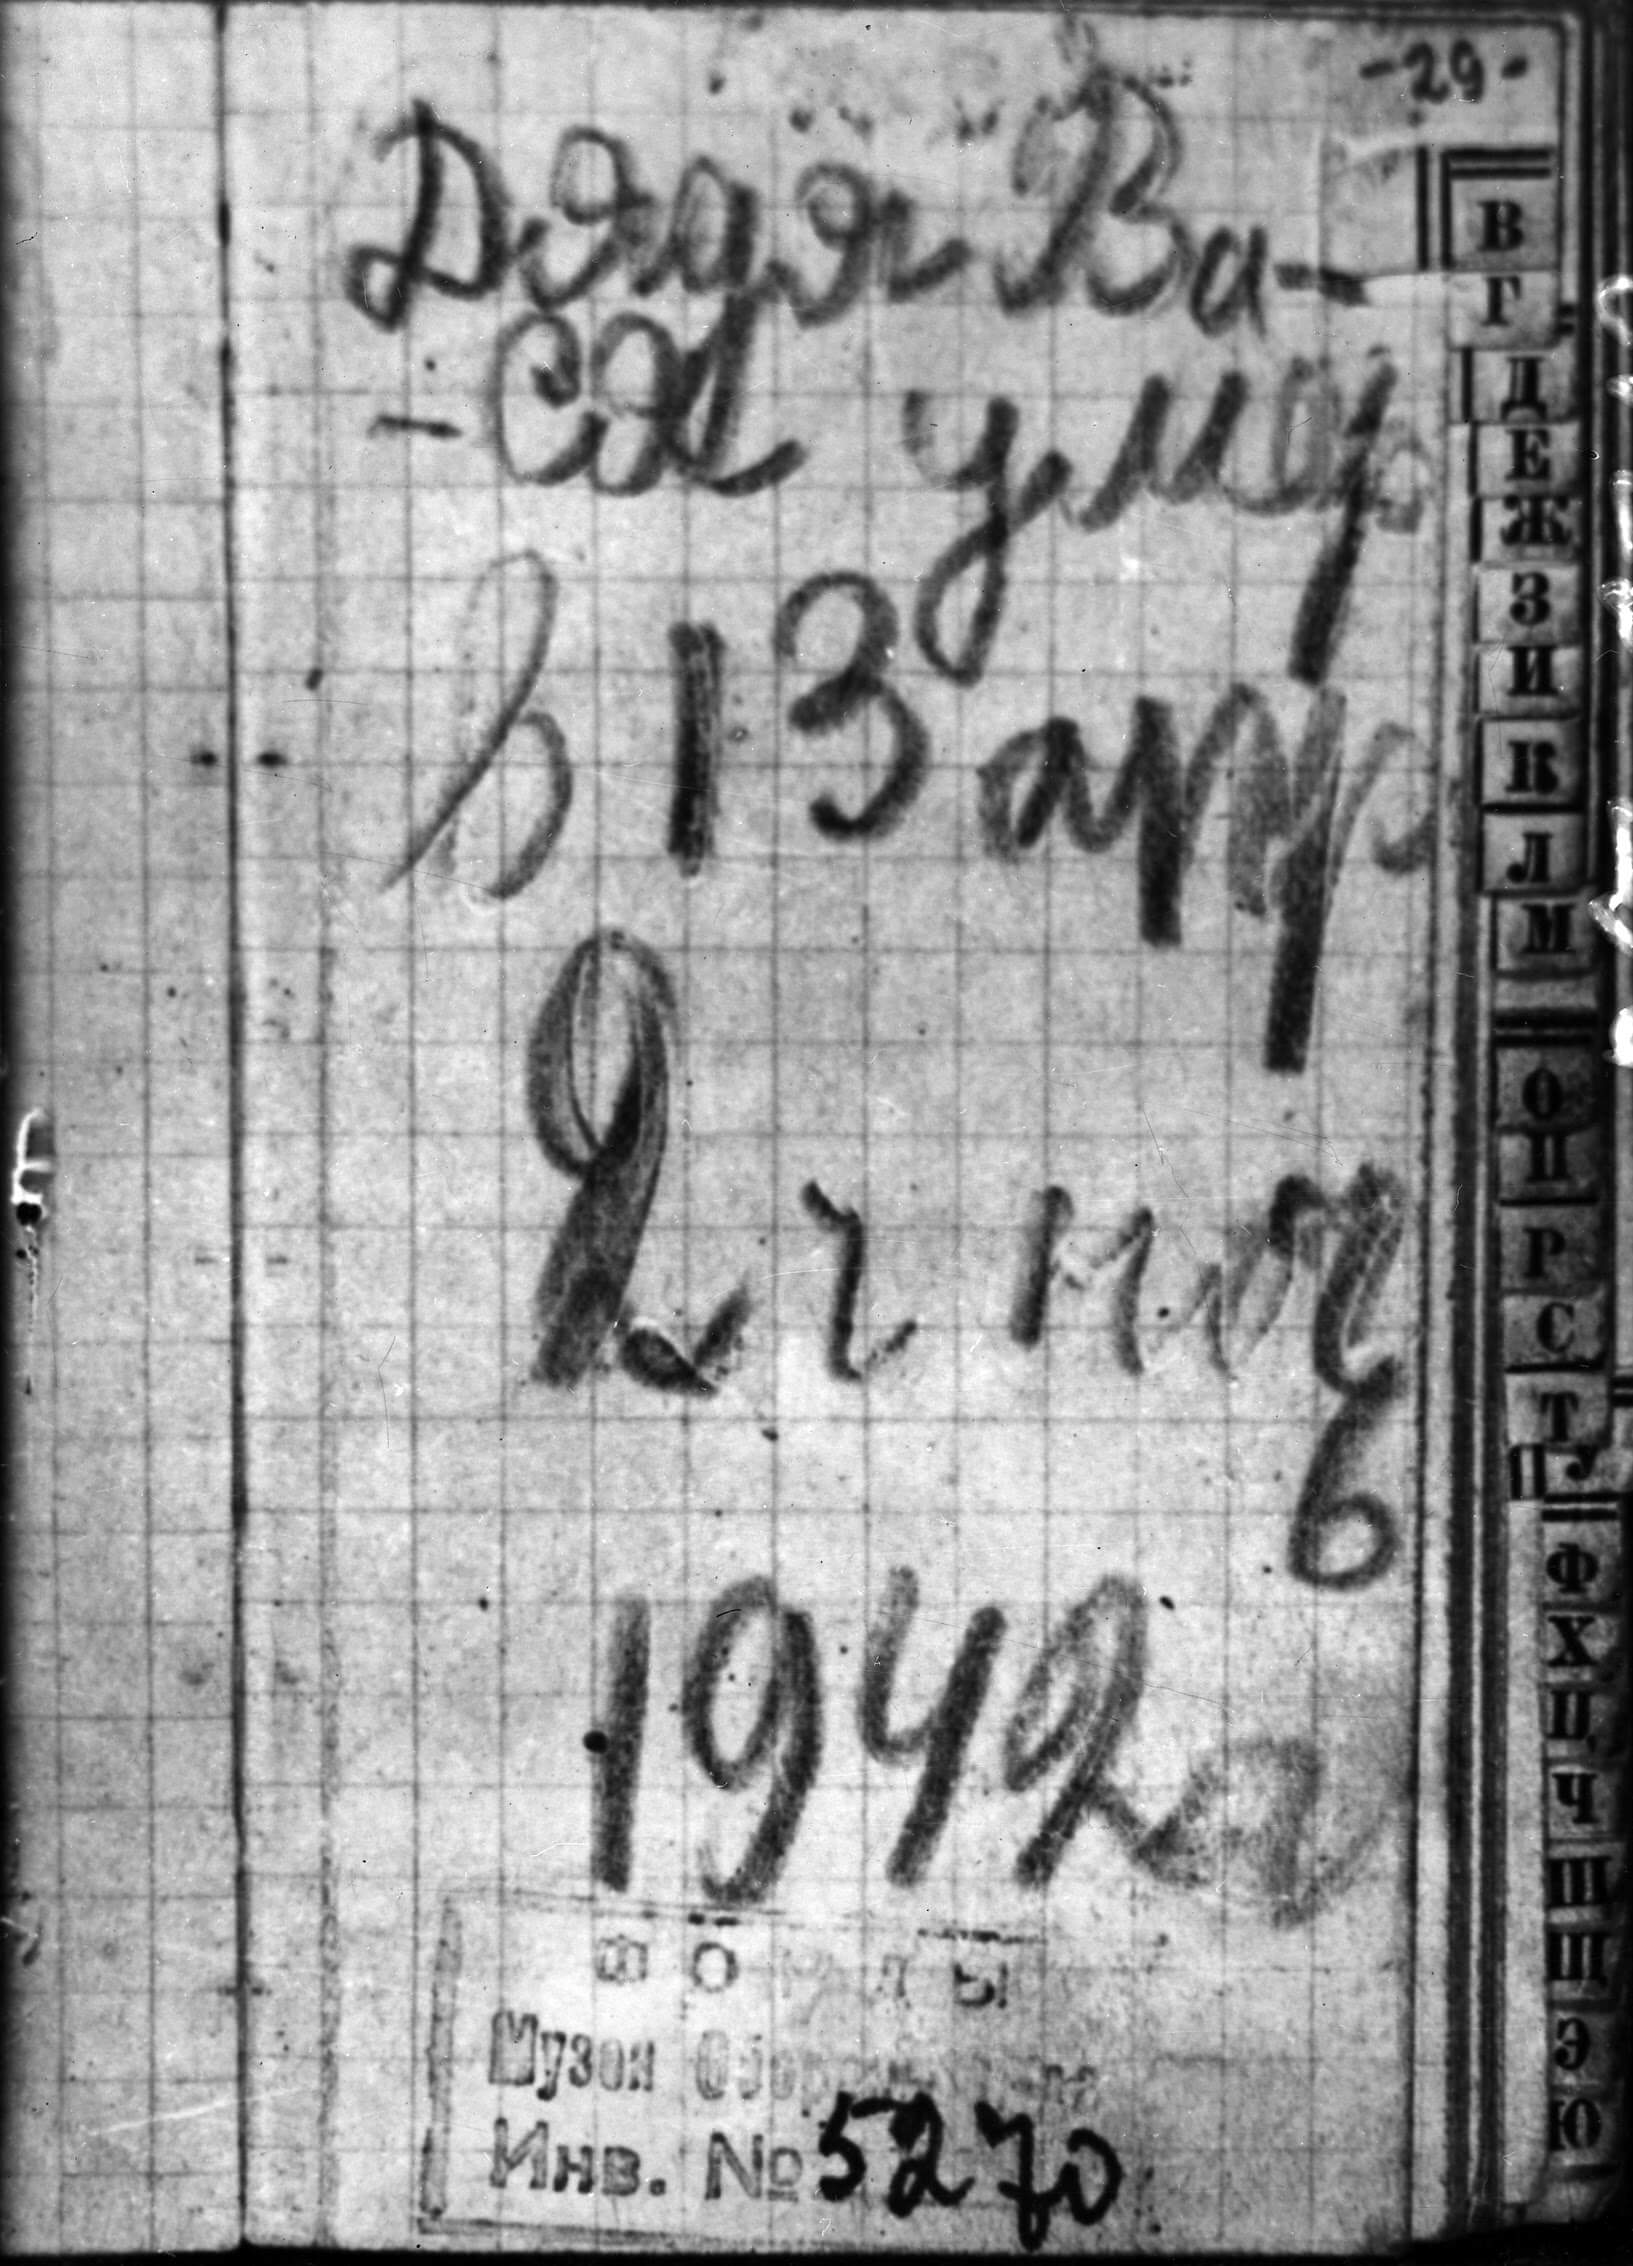 -29-
Дядя Ва-
-ся умер
в 13 апр
2 ч ноч
ь
1942 г
ФОНДЫ
Музея
Инв. № 5270
В
Г
Д
Е
Ж
З
И
К
Л
М
О
П
Р
С
Т
У
Ф
Х
Ц
Ч
Ш
Щ
Э
Ю